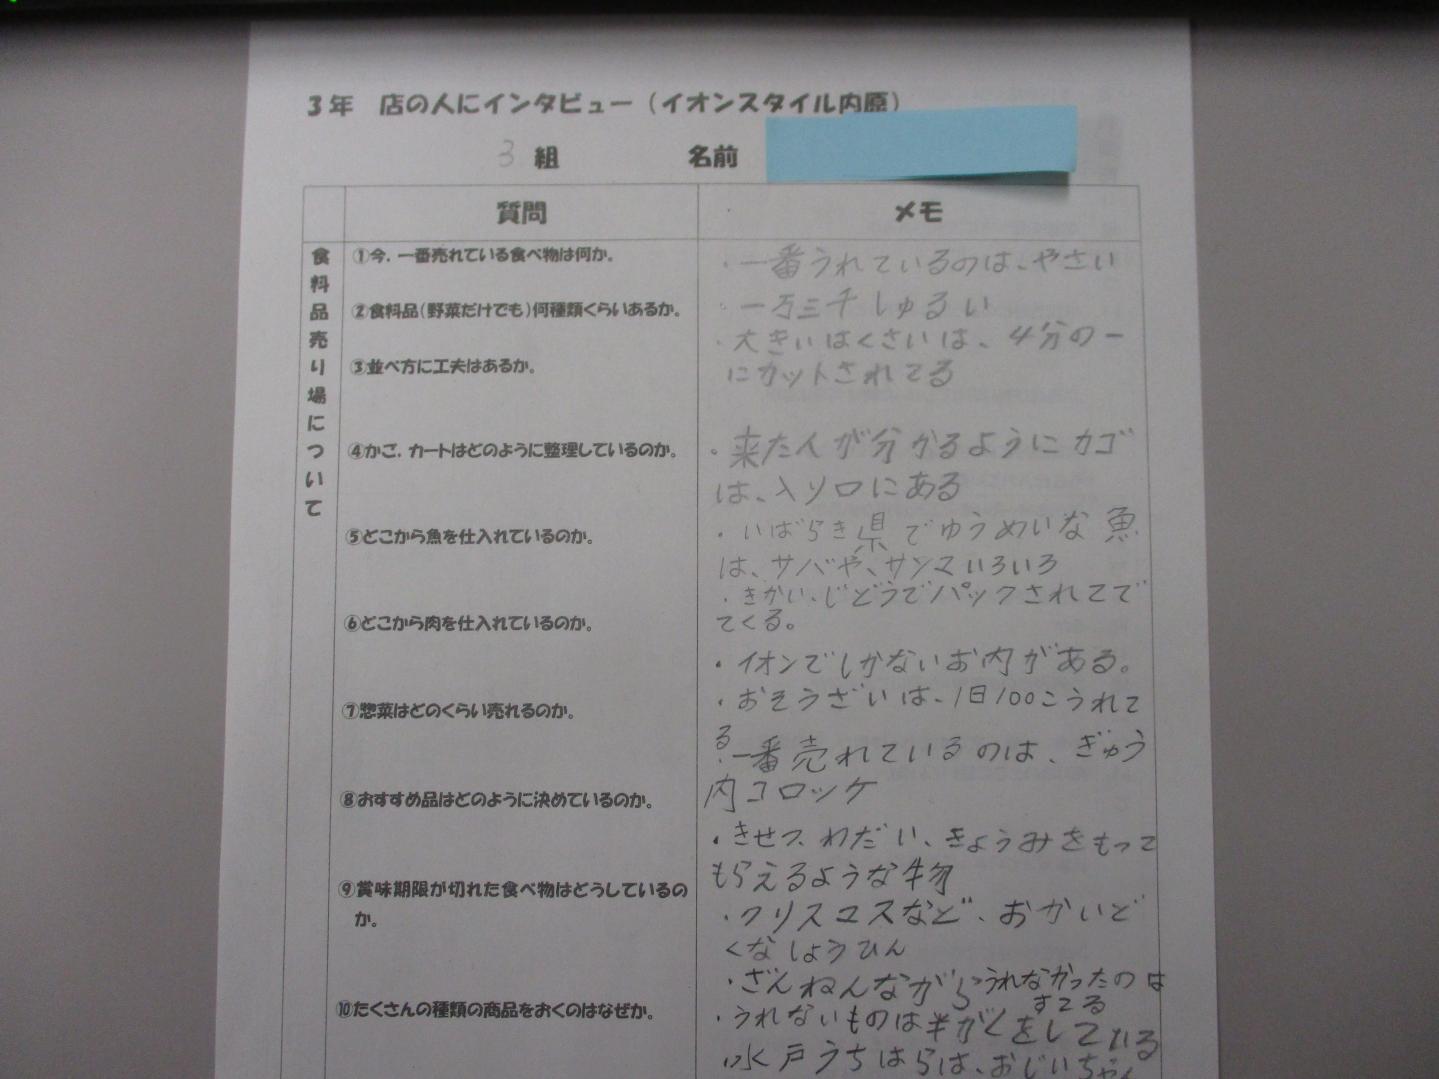 3年 店の人にインタビュー（イオンスタイル内原）
3 組 名前
質問 メモ
食料品売り場について
①今，一番売れている食べ物は何か。
・一番うれているのは、やさい
②食料品（野菜だけでも）何種類くらいあるか。
・一万三千しゅるい
③並べ方に工夫はあるか。
・大きいはくさいは、4分の一
にカットされてる
④かご，カートはどのように整理しているのか。
・来た人が分かるようにカゴ
は、入り口にある
⑤どこから魚を仕入れているのか。
・いばらき県でゆうめいな魚
は、サバや、サンマいろいろ
・きかい、じどうでパックされてで
てくる。
⑥どこから肉を仕入れているのか。
・イオンでしかないお肉がある。
⑦惣菜はどのくらい売れるのか。
・おそうざいは、1日100こうれて
る
・一番売れているのは、ぎゅう
肉コロッケ
⑧おすすめ品はどのように決めているのか。
・きせつ、わだい、きょうみをもって
もらえるような物
・クリスマスなど、おかいど
くなしょうひん
⑨賞味期限が切れた食べ物はどうしているの
か。
・ざんねんながらうれなかったのは
すてる
・うれないものは半がくをしている
⑩たくさんの種類の商品をおくのはなぜか。
・水戸うちはらは、おじいちゃん